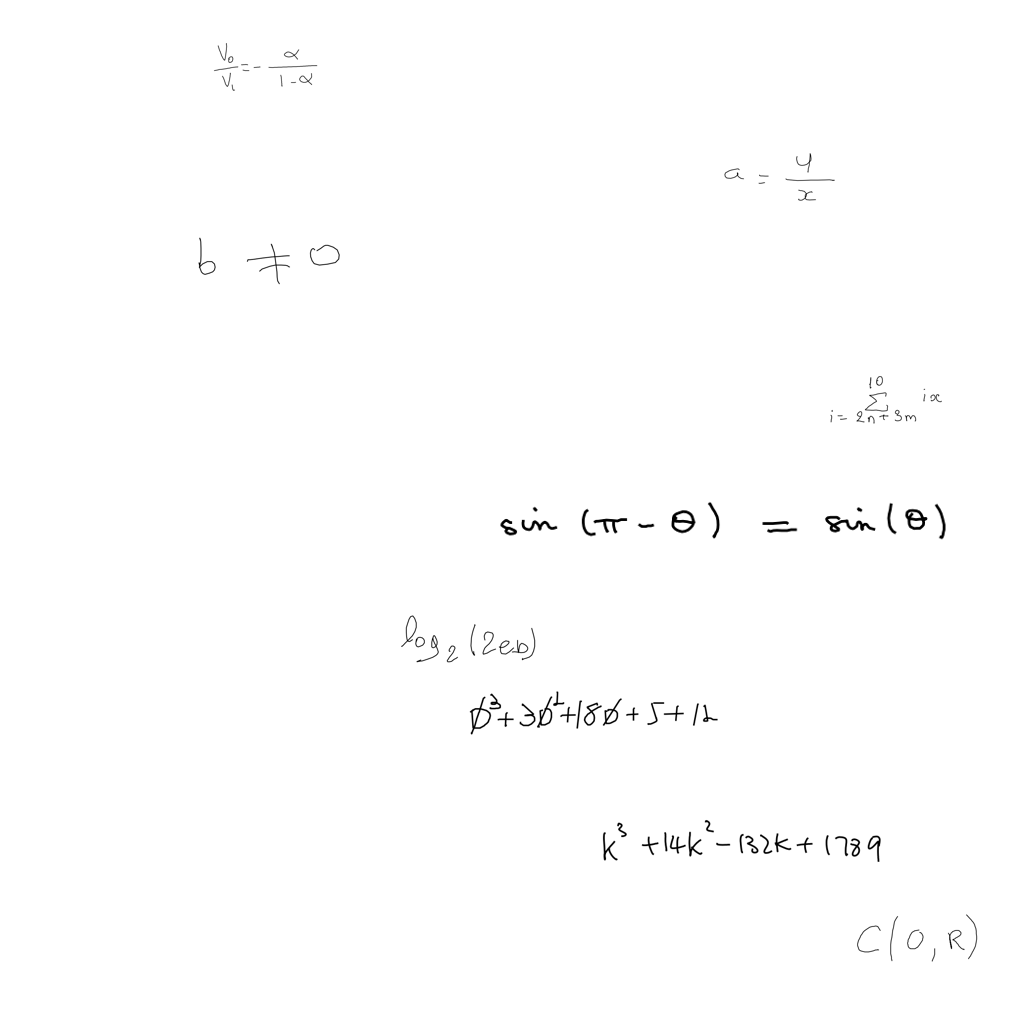 \frac{V_0}{V_1}=-\frac{\alpha}{1-\alpha}
a=\frac{y}{x}
b \neq 0
\sum_{i=2n+3m}^{10} ix
sin (π - θ) = sin(θ)
log_2(2eb)
ϕ^3+3ϕ^2+18ϕ+5+12
k^3+14k^2-132k+1789
C(O,R)